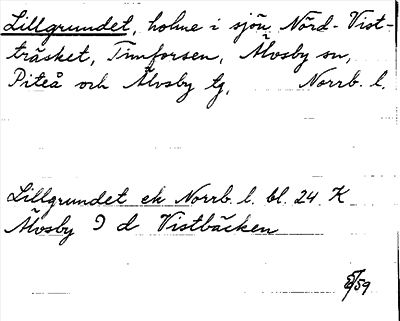 Lillgrundet, holme i sjön Nörd-Vist-
träsket, Timforsen, Älvsby sn,
Piteå och Älvsby tg, Norrb. l.
Lillgrundet ek Norrb. l. bl. 24 K
Älvsby 9 d Vistbäcken
/59